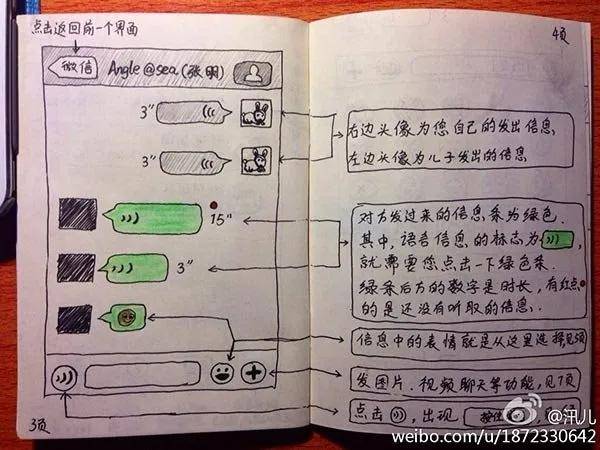 点击返回前一个界面
微信
Angle@sea(张明)
3"
3"
15"
3"
3页
4页
右边头像为您自己的发出信息
左边头像为儿子发出的信息
对方发过来的信息条为绿色.
其中,语音信息的标志为
就需要您点击一下绿色条.
绿条后方的数字是时长,有红点
的是还没有听取的信息.
信息中的表情就是从这里选择,见5页
发图片.视频聊天等功能,见7页
点击 ,出现 按住
@汛儿
weibo.com/u/1872330642